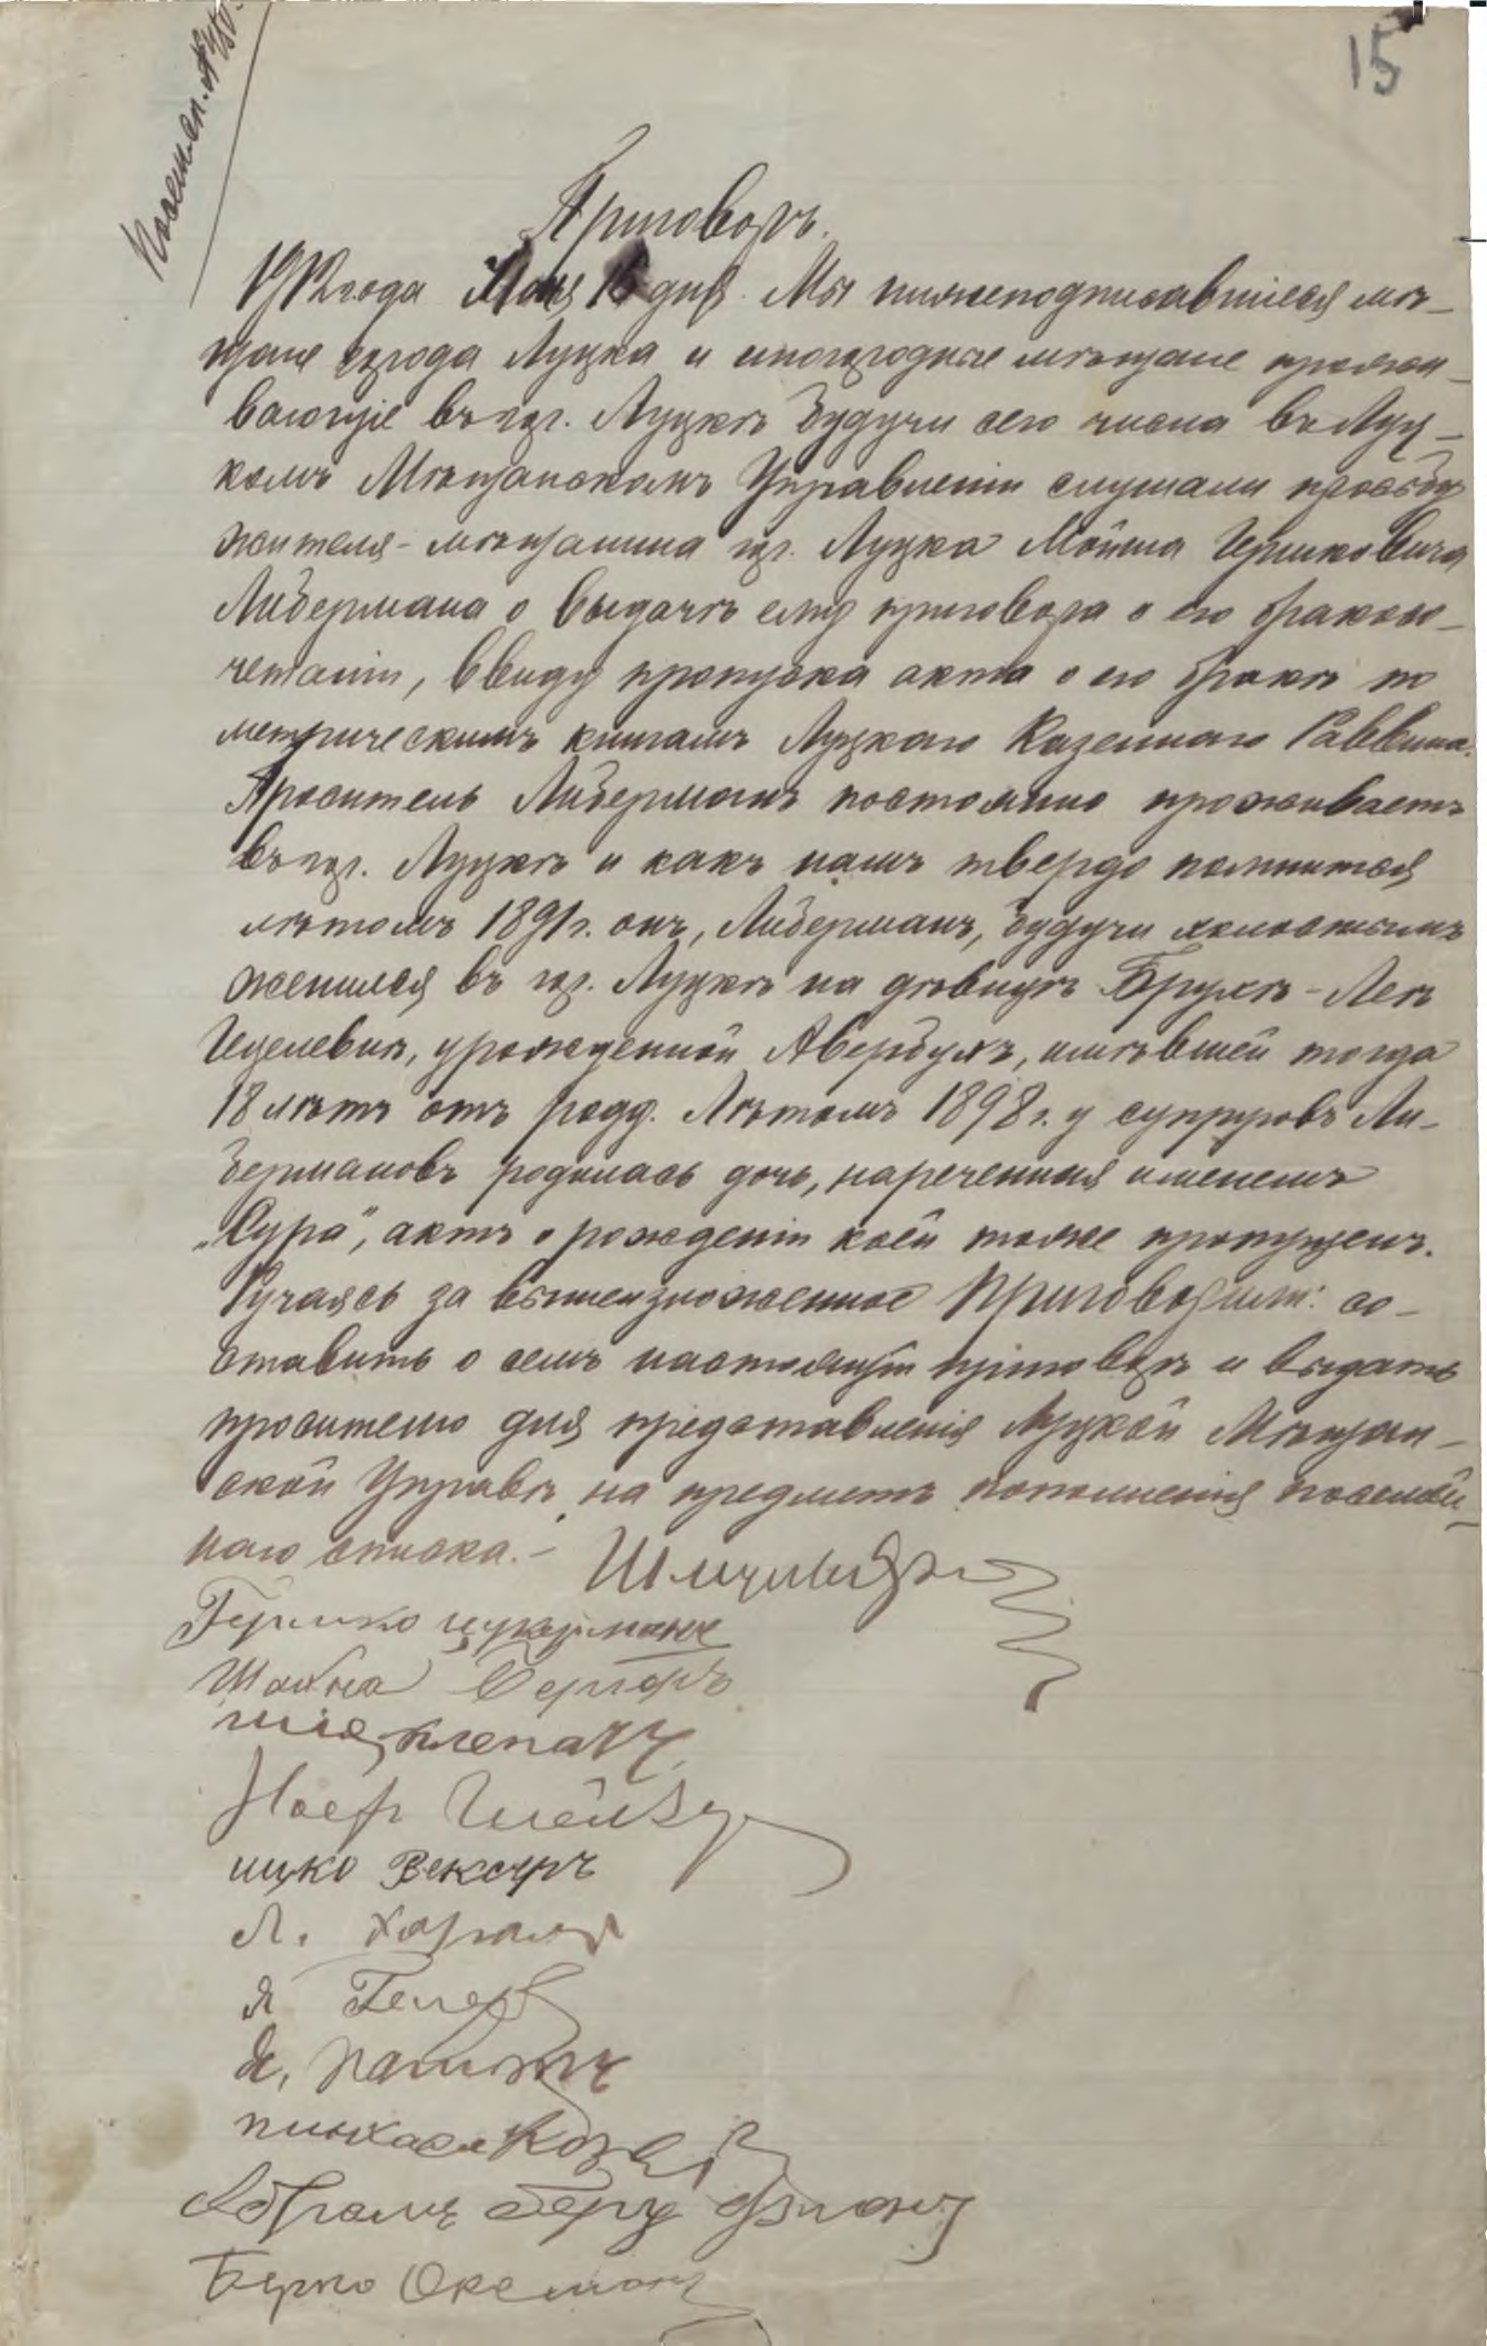 15
Посем. сп. №
Приговоръ.
года дня. Мы нижеподписавшіеся мѣ-
щане города Луцка и иногородные мѣщане прожи-
вающіе въ гор. Луцкѣ будучи сего числа въ Луц-
комъ Мѣщанскомъ Управленіи слушали просьбу
жителя-мѣщанина гор. Луцка Мойша Гершковича
Либермана о выдачѣ ему приговора о его бракосо-
четаніи, ввиду пропуска акта о его бракѣ по
метрическимъ книгамъ Луцкаго Казеннаго Раввина.
Проситель Либерманъ постоянно проживаетъ
въ гор. Луцкѣ и какъ намъ твердо помниться
лѣтомъ 1891 г. онъ, Либерманъ, будучи холостымъ
женился въ гор. Луцкѣ на дѣвицѣ Брухѣ-Леѣ
Гецелевнѣ, урожденной Авербухъ, имѣвшей тогда
18 лѣтъ отъ роду. Лѣтомъ 1898 г. у супруговъ Ли-
бермановъ родилась дочь, нареченная именемъ
„Сура", актъ о рожденіи коей тоже пропущенъ.
Ручаясь за вышеизложенное Приговорили: со-
ставить о семъ настоящій приговоръ и выдать
просителю для представленія Луцкой Мѣщан-
ской Управѣ на предметъ пополненія посемей-
наго списка.-
Гершко Цукерманъ
Шабса
Клепачъ
Иосф
ицко Вексеръ
Л.
Я Гелер
Пинхась
Абрамъ Беръ
Берко Оксман